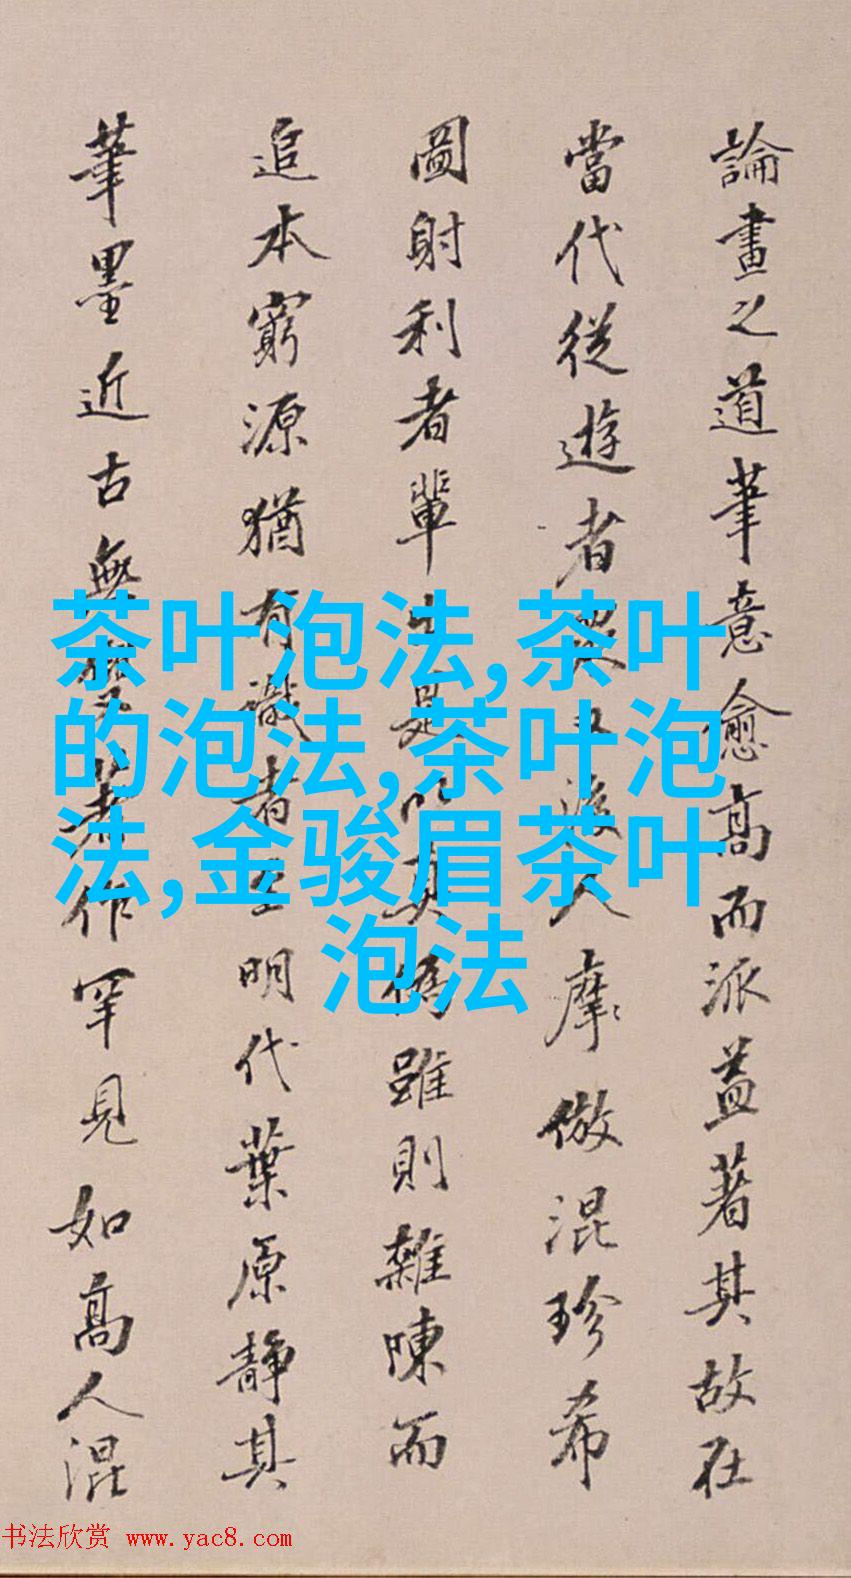 論畫之道筆意愈高而派益著其故在
當代從遊者後人摩倣混珍希
圖射利者輩出是以真偽雖則雜陳而
追本窮源猶有識者至明代葉原靜其
筆墨近古無著作罕見如高人混
茶叶泡法,茶叶
的泡法,茶叶泡
法,金骏眉茶叶
泡法
书法欣赏 www.yac8.com